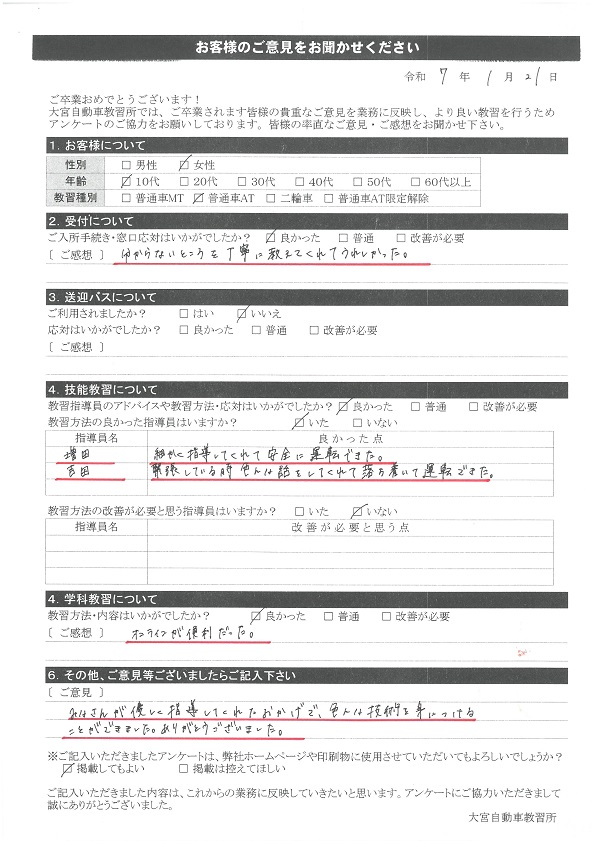 お客様のご意見をお聞かせください
令和 7 年 1 月 21 日
ご卒業おめでとうございます！
大宮自動車教習所では、ご卒業されます皆様の貴重なご意見を業務に反映し、より良い教習を行うため
アンケートのご協力をお願いしております。皆様の率直なご意見・ご感想をお聞かせ下さい。
1. お客様について
性別 □ 男性 ☑ 女性
年齢 ☑ 10代 □ 20代 □ 30代 □ 40代 □ 50代 □ 60代以上
教習種別 □ 普通車MT ☑ 普通車AT □ 二輪車 □ 普通車AT限定解除
2. 受付について
ご入所手続き・窓口応対はいかがでしたか？ ☑ 良かった □ 普通 □ 改善が必要
〔 ご感想 〕 分からないところを丁寧に教えてくれてうれしかった。
3. 送迎バスについて
ご利用されましたか？ □ はい ☑ いいえ
応対はいかがでしたか？ □ 良かった □ 普通 □ 改善が必要
〔 ご感想 〕
4. 技能教習について
教習指導員のアドバイスや教習方法・応対はいかがでしたか？ ☑ 良かった □ 普通 □ 改善が必要
教習方法の良かった指導員はいますか？ ☑ いた □ いない
指導員名 良かった点
増田 細かく指導してくれて安全に運転できた。
吉田 緊張している時色んな話をしてくれて落ち着いて運転できた。
教習方法の改善が必要と思う指導員はいますか？ □ いた ☑ いない
指導員名 改善が必要と思う点
4. 学科教習について
教習方法・内容はいかがでしたか？ ☑ 良かった □ 普通 □ 改善が必要
〔 ご感想 〕 オンラインが便利だった。
6. その他、ご意見等ございましたらご記入下さい
〔 ご意見 〕
みなさんが優しく指導してくれたおかげで、色んな技術を身につける
ことができました。ありがとうございました。
※ご記入いただきましたアンケートは、弊社ホームページや印刷物に使用させていただいてもよろしいでしょうか？
☑ 掲載してもよい □ 掲載は控えてほしい
ご記入いただきました内容は、これからの業務に反映していきたいと思います。アンケートにご協力いただきまして
誠にありがとうございました。
大宮自動車教習所